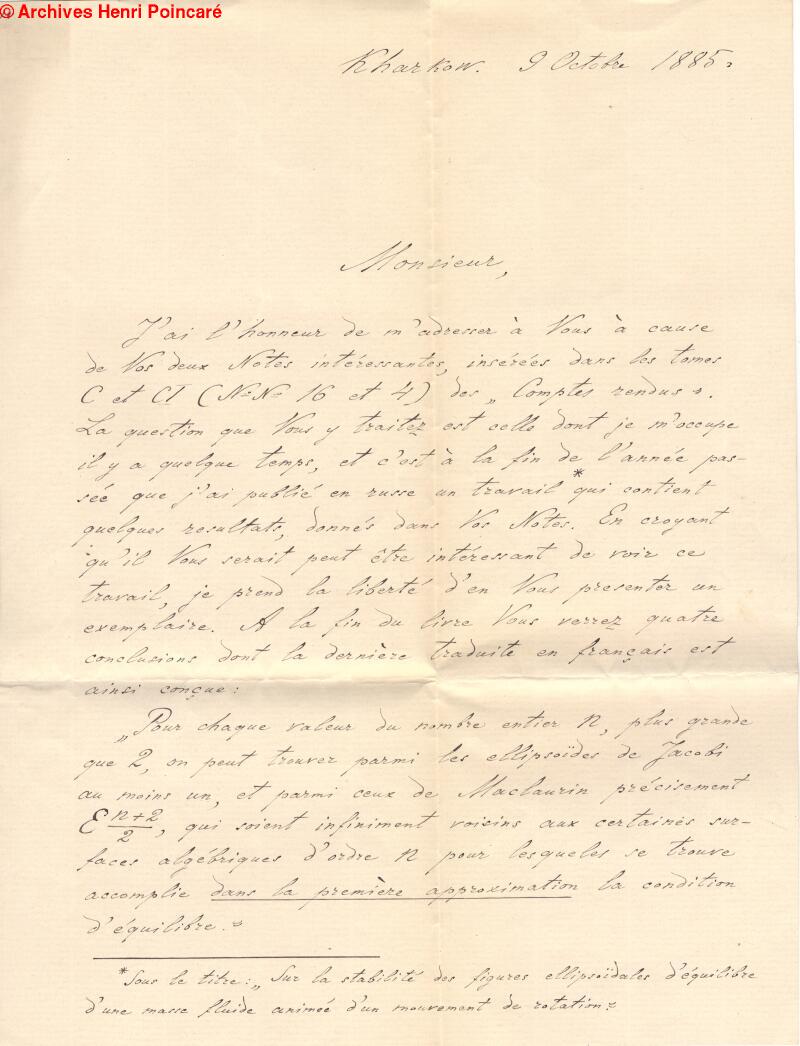 © Archives Henri Poincaré
Kharkow. 9 Octobre 1885.
Monsieur,
J'ai l'honneur de m'adresser à Vous à cause
de Vos deux Notes intéressantes, insérées dans les tomes
C et CI (No No 16 et 4) des „Comptes rendus".
La question que Vous y traitez est celle dont je m'occupe
il y a quelque temps, et c'est à la fin de l'année pas-
sée que j'ai publié en russe un travail * qui contient
quelques resultats, donnés dans Vos Notes. En croyant
qu'il Vous serait peut être intéressant de voir ce
travail, je prend la liberté d'en Vous presenter un
exemplaire. A la fin du livre Vous verrez quatre
conclusions dont la dernière traduite en français est
ainsi conçue:
„Pour chaque valeur du nombre entier n, plus grande
que 2, on peut trouver parmi les ellipsoïdes de Jacobi
au moins un, et parmi ceux de Maclaurin précisement
E n+2/2, qui soient infiniment voisins aux certaines sur-
faces algébriques d'ordre n pour lesqueles se trouve
accomplie dans la première approximation la condition
d'équilibre."
* Sous le titre: „Sur la stabilité des figures ellipsoïdales d'équilibre
d'une masse fluide animée d'un mouvement de rotation."